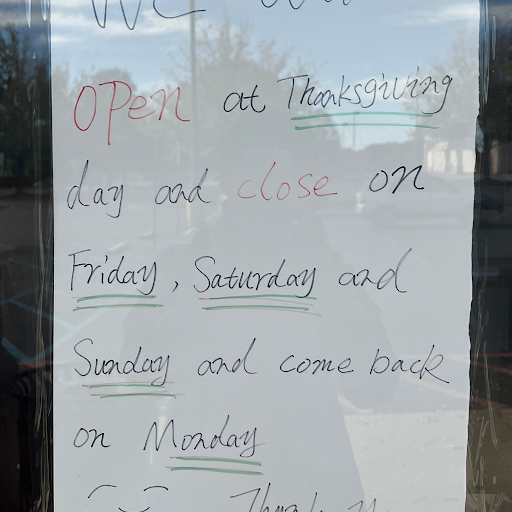 WE
OPen at Thanksgiving
day and close on
Friday, Saturday and
Sunday and come back
on Monday